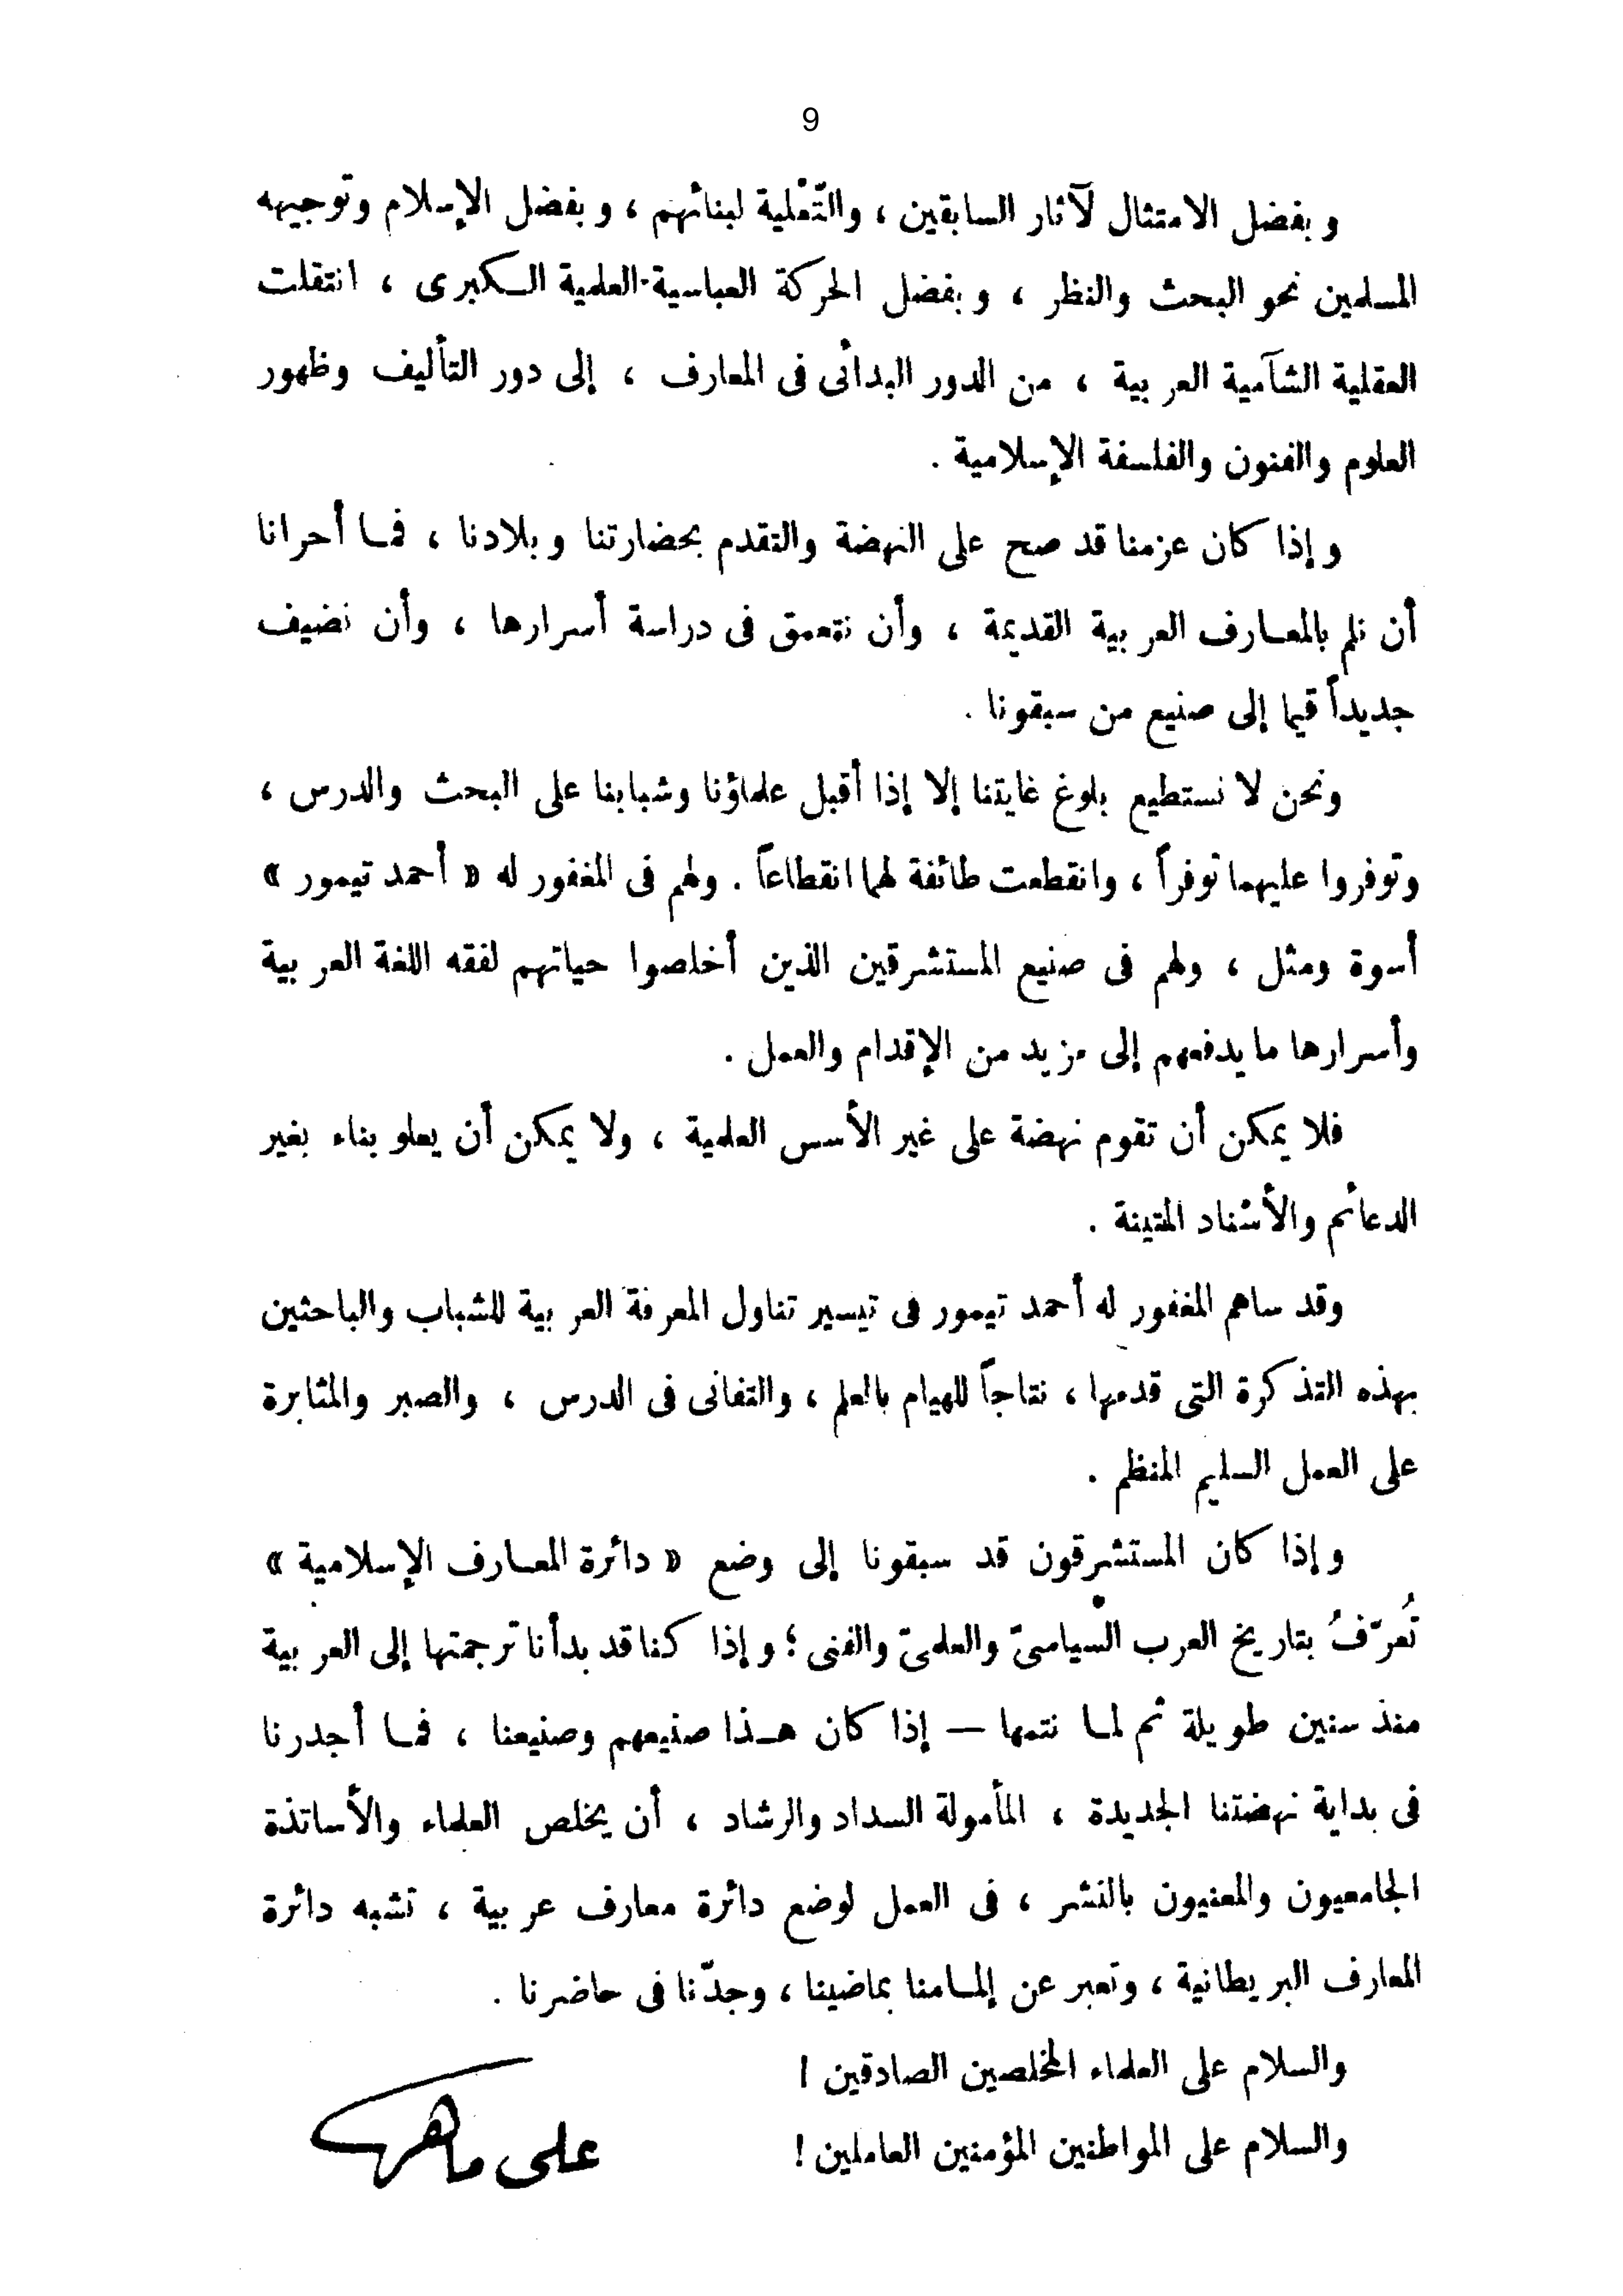 9
وبفضل الامتثال لآثار السابقين ، والتّعْلية لبنائهم ، وبفضل الإسلام وتوجيهه
المسلمين نحو البحث والنظر ، وبفضل الحركة العباسية العلمية الكبرى ، انتقلت
العقلية الشآمية العربية ، من الدور البدائى فى المعارف ، إلى دور التأليف وظهور
العلوم والفنون والفلسفة الإسلامية .
وإذا كان عزمنا قد صح على النهضة والتقدم بحضارتنا وبلادنا ، فما أحرانا
أن نلم بالمعارف العربية القديمة ، وأن نتعمق فى دراسة أسرارها ، وأن نضيف
جديداً قيما إلى صنيع من سبقونا .
ونحن لا نستطيع بلوغ غايتنا إلا إذا أقبل علماؤنا وشبابنا على البحث والدرس ،
وتوفروا عليهما توفراً ، وانقطعت طائفة لهما انقطاعاً . ولهم فى المغفور له « أحمد تيمور »
أسوة ومثل ، ولهم فى صنيع المستشرقين الذين أخلصوا حياتهم لفقه اللغة العربية
وأسرارها ما يدفعهم إلى مزيد من الإقدام والعمل .
فلا يمكن أن تقوم نهضة على غير الأسس العلمية ، ولا يمكن أن يعلو بناء بغير
الدعائم والأسناد المتينة .
وقد ساهم المغفور له أحمد تيمور فى تيسير تناول المعرفة العربية للشباب والباحثين
بهذه التذكرة التى قدمها ، نتاجاً للهيام بالعلم ، والتفانى فى الدرس ، والصبر والمثابرة
على العمل السليم المنظم .
وإذا كان المستشرقون قد سبقونا إلى وضع « دائرة المعارف الإسلامية »
تُعرّفُ بتاريخ العرب السياسىّ والعلمىّ والفنى ؛ وإذا كنا قد بدأنا ترجمتها إلى العربية
منذ سنين طويلة ثم لما نتمها — إذا كان هذا صنيعهم وصنيعنا ، فما أجدرنا
فى بداية نهضتنا الجديدة ، المأمولة السداد والرشاد ، أن يخلص العلماء والأساتذة
الجامعيون والمعنيون بالنشر ، فى العمل لوضع دائرة معارف عربية ، تشبه دائرة
المعارف البريطانية ، وتعبر عن إلمامنا بماضينا ، وجدّنا فى حاضرنا .
والسلام على العلماء المخلصين الصادقين !
والسلام على المواطنين المؤمنين العاملين !
على ماهر